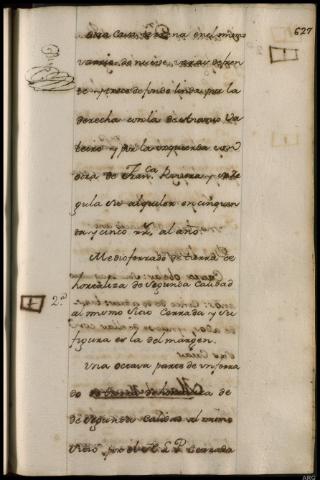 627
Una Casa terrena en el mismo
varrio, de nueve varas de fren
te y trece de fondo linda por la
derecha con la de Antonio Va
leiro y por la izquierda con
otra de Fran.ca Rivera y se re
gula su alquiler en cinquen
ta y cinco rr.s al año.
Medio ferrado de tierra de
hortaliza de segunda Calidad
2.ª
al mismo sitio Cerrada y su
figura es la del margen.
Una octava parte de un ferra
do de
de segunda Calidad al mismo
sitio, por el N. L. P. Cerrada
ARG